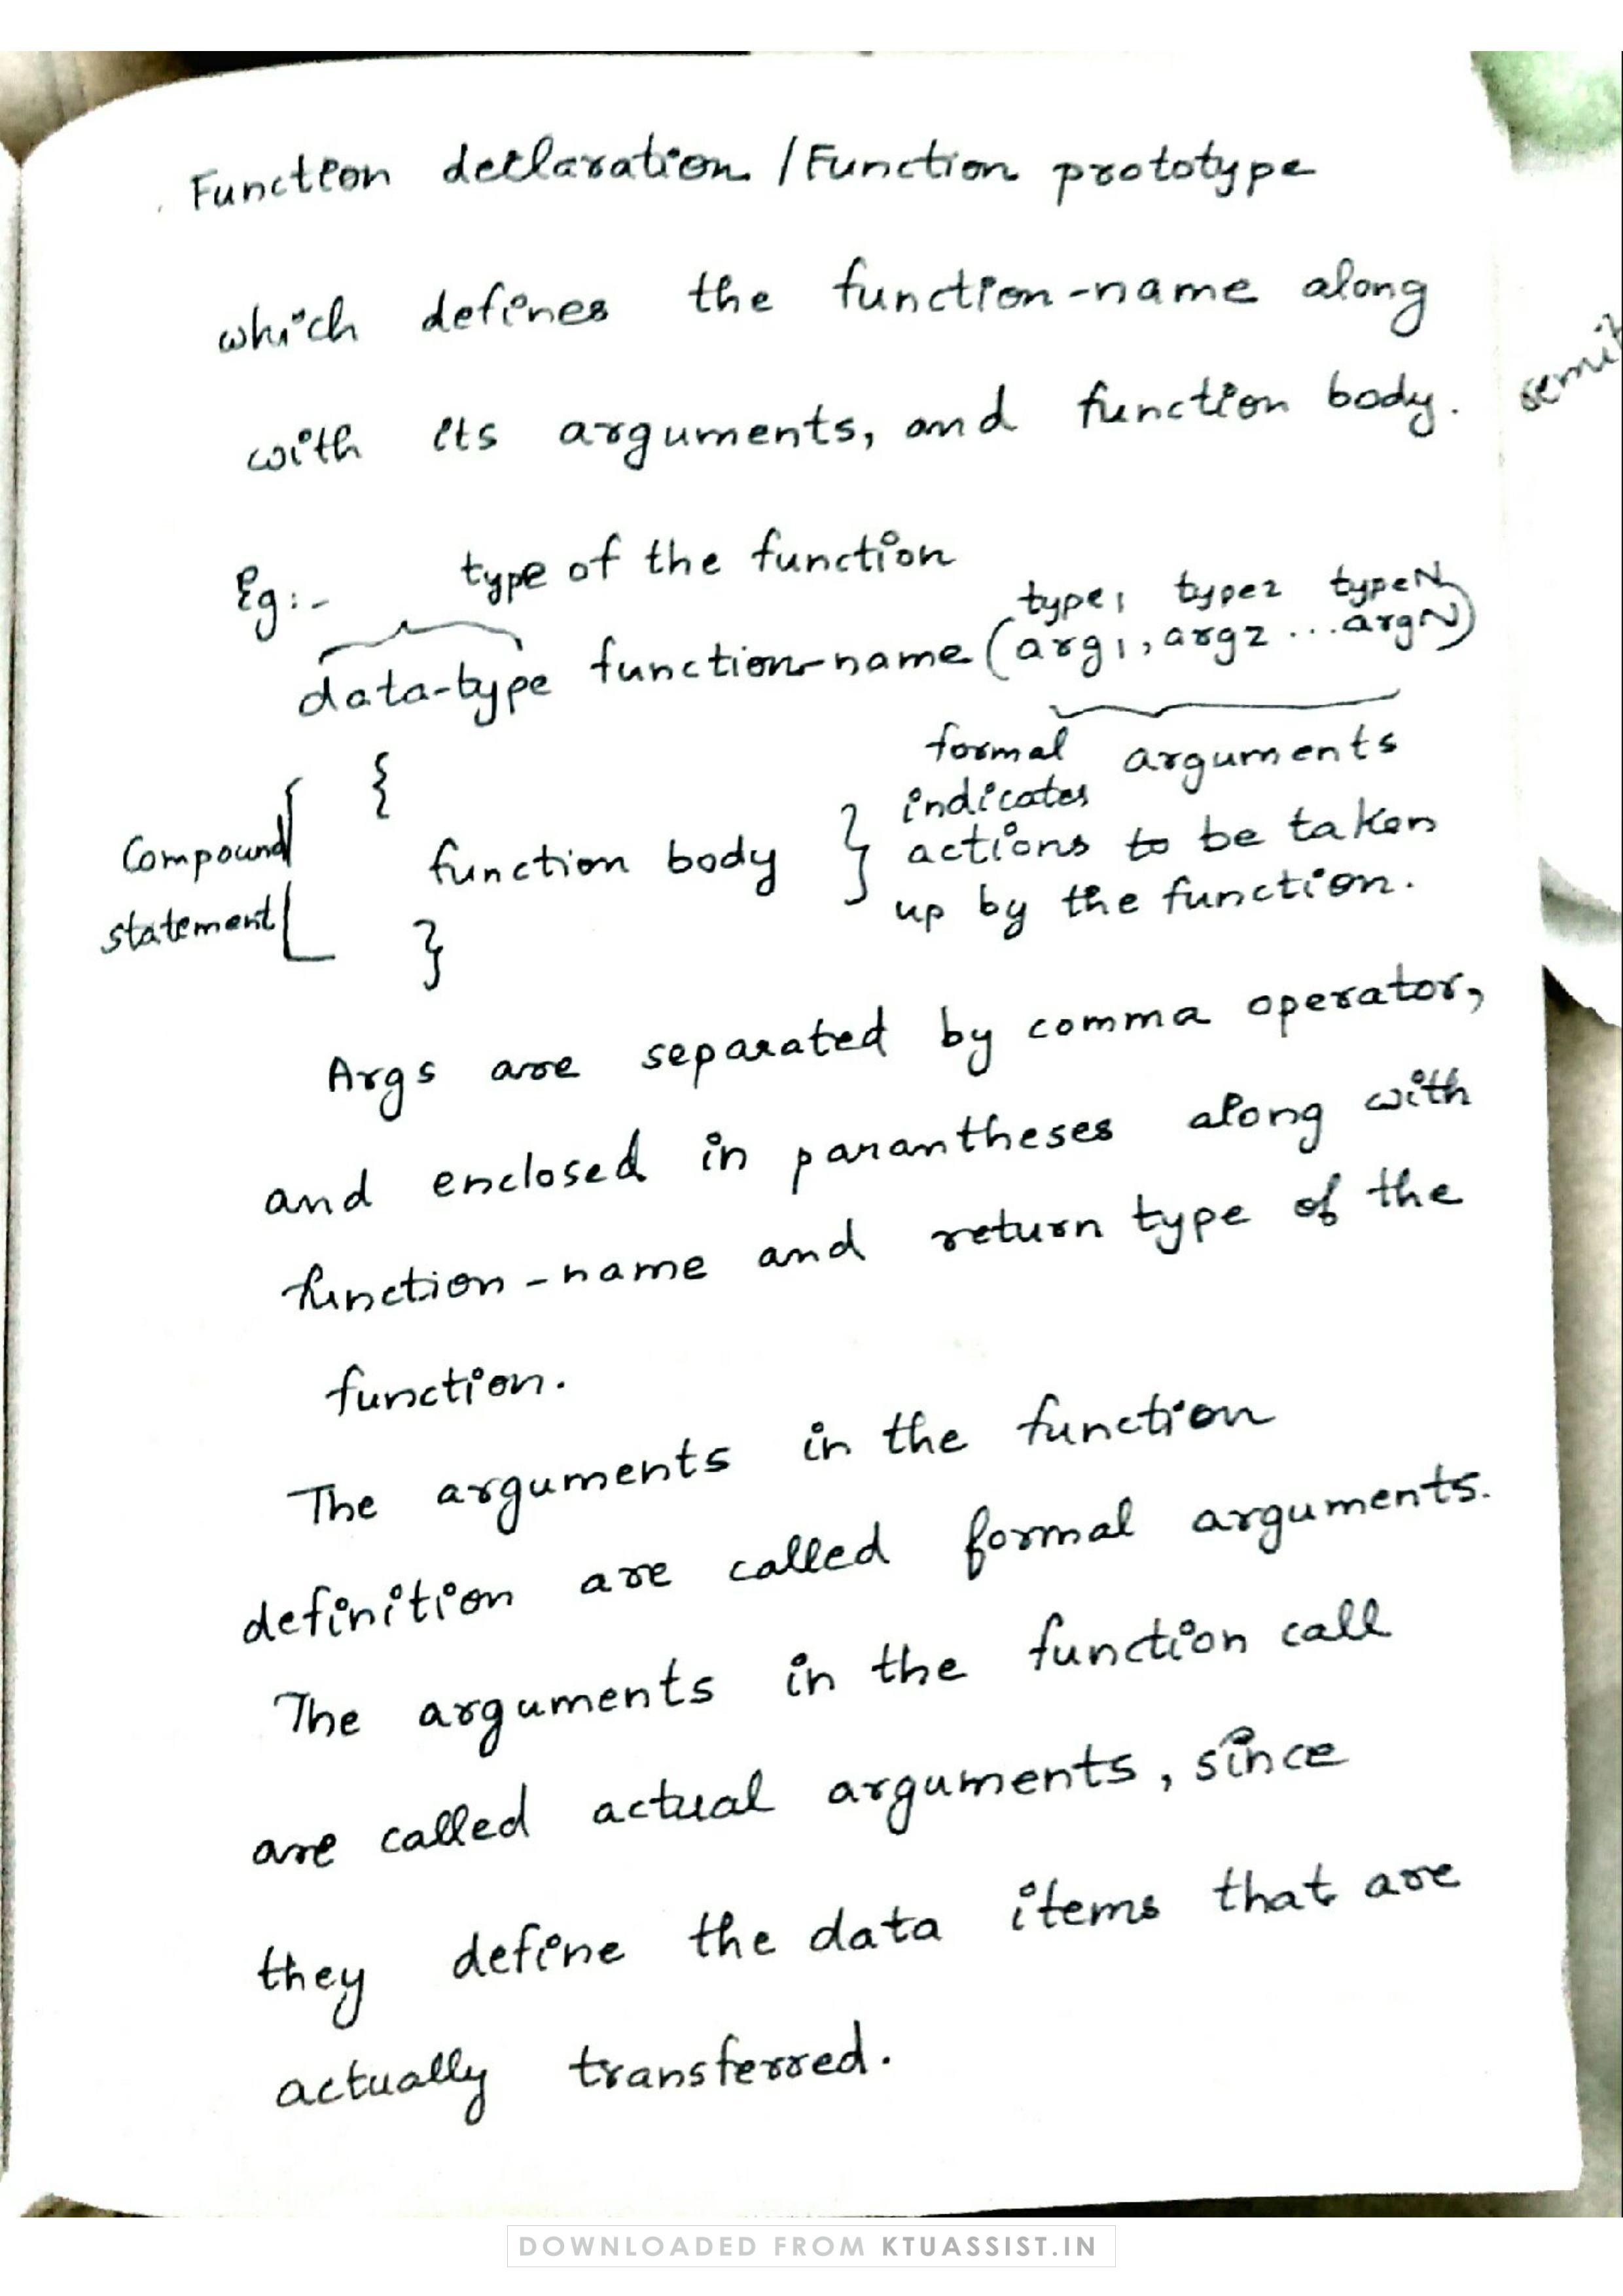 Function declaration / Function prototype
which defines the function-name along
with its arguments, and function body.
Eg:- type of the function
type1 type2 typeN
data-type function-name (arg1, arg2 ... argN)
formal arguments
{
indicates
Compound
function body } actions to be taken
statement
up by the function.
}
Args are separated by comma operator,
and enclosed in parantheses along with
function-name and return type of the
function.
The arguments in the function
definition are called formal arguments.
The arguments in the function call
are called actual arguments, since
they define the data items that are
actually transferred.
DOWNLOADED FROM KTUASSIST.IN